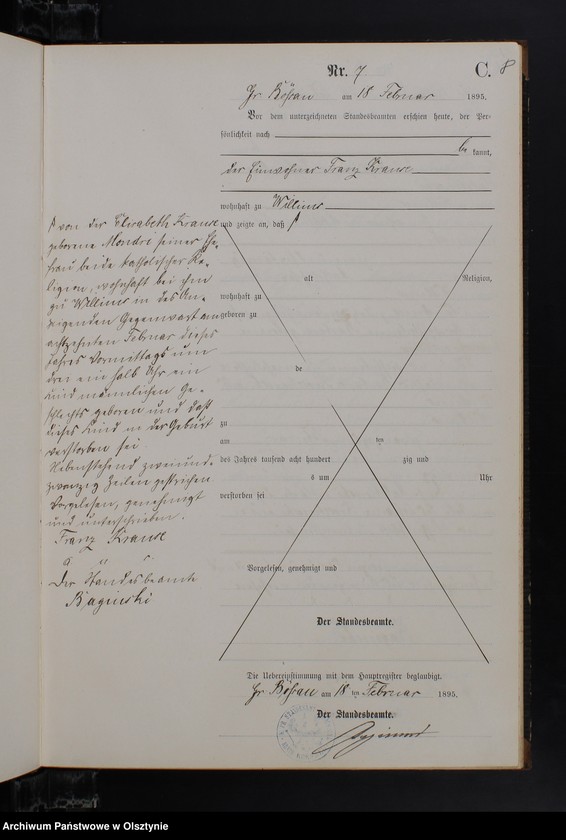 Nr. 7 C. 8
Gr Bößau am 18 Februar 1895.
Vor dem unterzeichneten Standesbeamten erschien heute, der Per-
sönlichkeit nach
be kannt,
der Einwohner Franz Krause
wohnhaft zu Willims
und zeigte an, daß
von der Elisabeth Krause
geborene Mondri seiner Ehe-
frau beide katholischer Re-
ligion, wohnhaft bei ihm
zu Willims in des An-
zeigenden Gegenwart am
achtzehnten Februar dieses
Jahres Vormittags um
drei ein halb Uhr ein
Kind männlichen Ge-
schlechts geboren und daß
dieses Kind in der Geburt
verstorben sei
Nebenstehend zweiund-
zwanzig Zeilen gestrichen
Vorgelesen, genehmigt
und unterschrieben.
Franz Krause
Der Standesbeamte
Baginski
alt Religion,
wohnhaft zu
geboren zu
de
zu
am ten
des Jahres tausend acht hundert zig und
s um Uhr
verstorben sei
Vorgelesen, genehmigt und
Der Standesbeamte.
Die Uebereinstimmung mit dem Hauptregister beglaubigt.
Gr Bößau am 18 ten Februar 1895.
Der Standesbeamte.
Archiwum Państwowe w Olsztynie